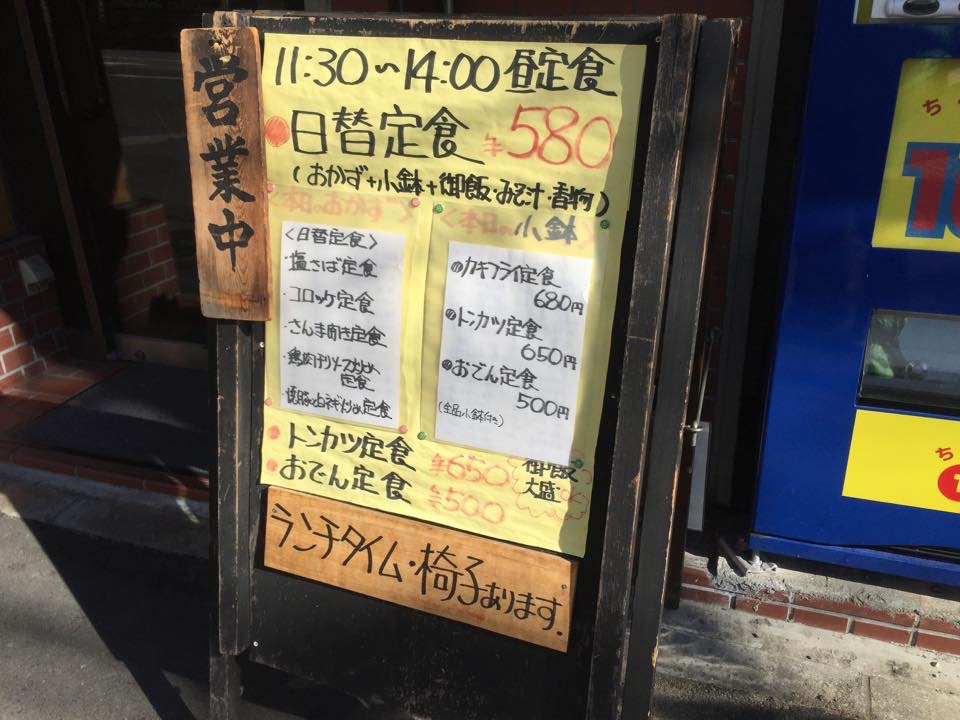 営業中
11:30〜14:00 昼定食
日替定食 ¥580
(おかず+小鉢+御飯・みそ汁・香物)
<本日のおかず>
<日替定食>
・塩さば定食
・コロッケ定食
・さんま開き定食
・鶏肉チリソース炒め
定食
・焼豚と白ネギ炒め定食
<本日の小鉢>
カキフライ定食
680円
トンカツ定食
650円
おでん定食
500円
(全品小鉢付き)
トンカツ定食 ¥650
おでん定食 ¥500
御飯
大盛
ランチタイム・椅子あります.
ち
10
ち
1